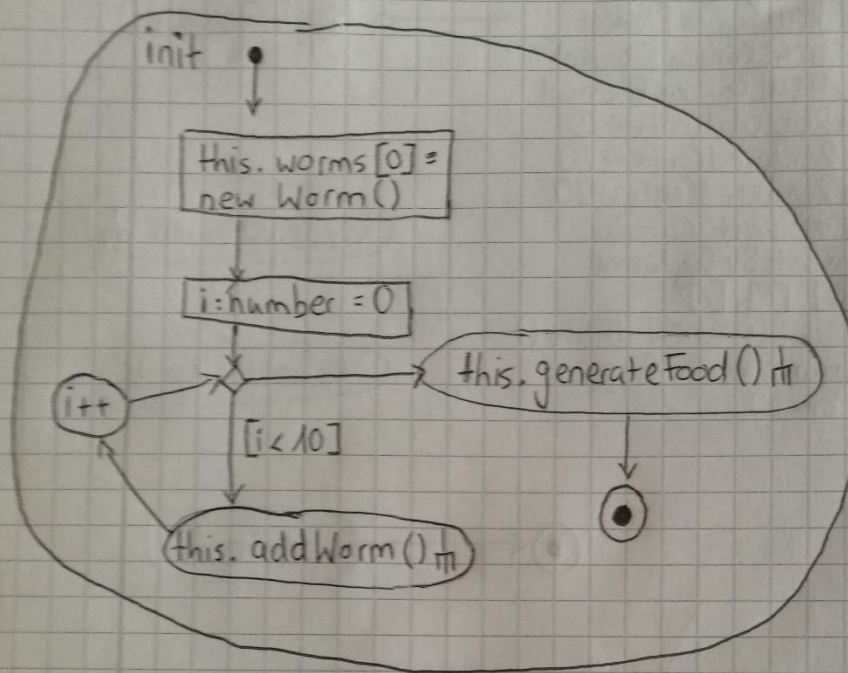 init
this.worms[0] =
new Worm()
i:number = 0
this.generateFood()
i++
[i<10]
this.addWorm()